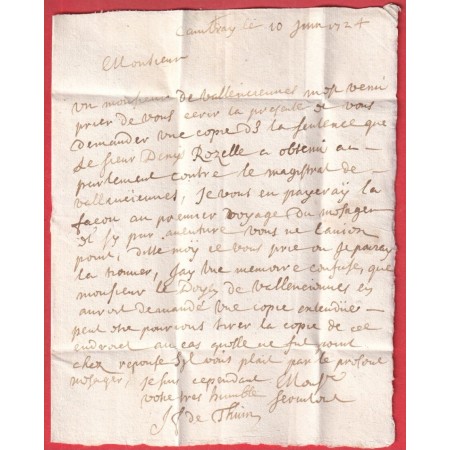 Cambray le 10 1724
Monsieur
Un monsieur de Vallenciennes most venu
prier de vous ecrir la presente et vous
demander une copie de la sentence que
le sieur Denys Rozelle a obtenu au
parlement contre le magistrat de
vallenciennes, Je vous en payeray la
facon au premier voyage du mesager
sy par aventure vous ne lauion
point, ditte moy ie vous prie ou Je pouray
la trouuer, Jay Une memoire confuse que
monsieur le Doyen de vallenciennes en
auroit demandé Une copie
peut etre pourions tirer la copie de cet
endroit au cas quelle ne fut point
chez reponse sil vous plait par le present
mesager, Je suis cependant Mons^r
votre tres humble serviteur
de Thuin